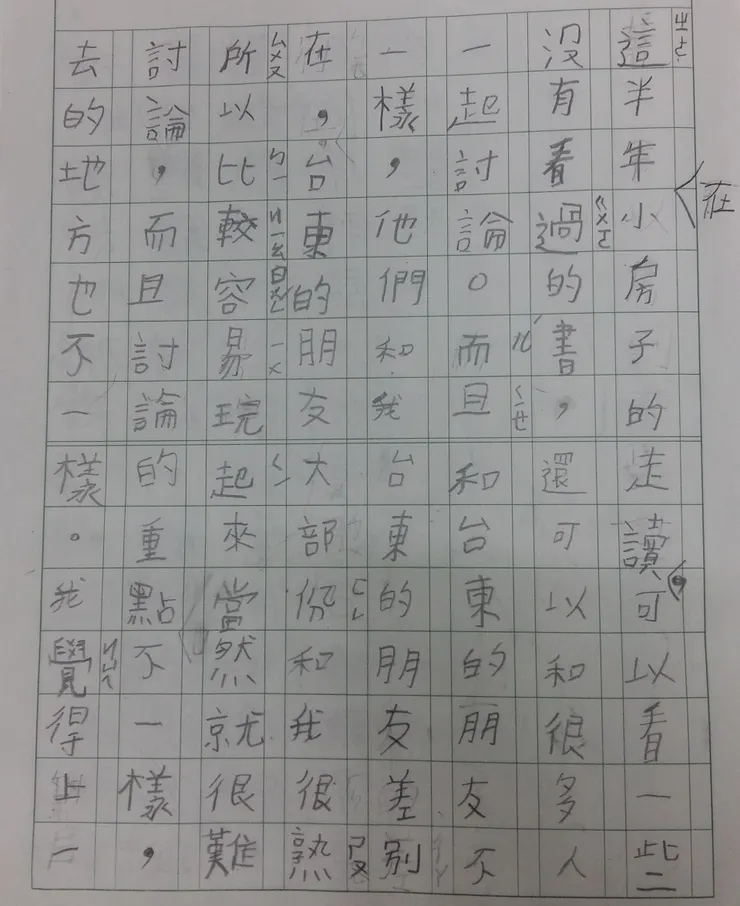 這半年在小房子的走讀，可以看一些
沒有看過的書，還可以和很多人
一起討論。而且和台東的朋友不
一樣，他們和我台東的朋友差別
在，台東的朋友大部份和我很熟
所以比較容易琓起來當然就很難
討論，而且討論的重點不一樣，
去的地方也不一樣。我覺得上一